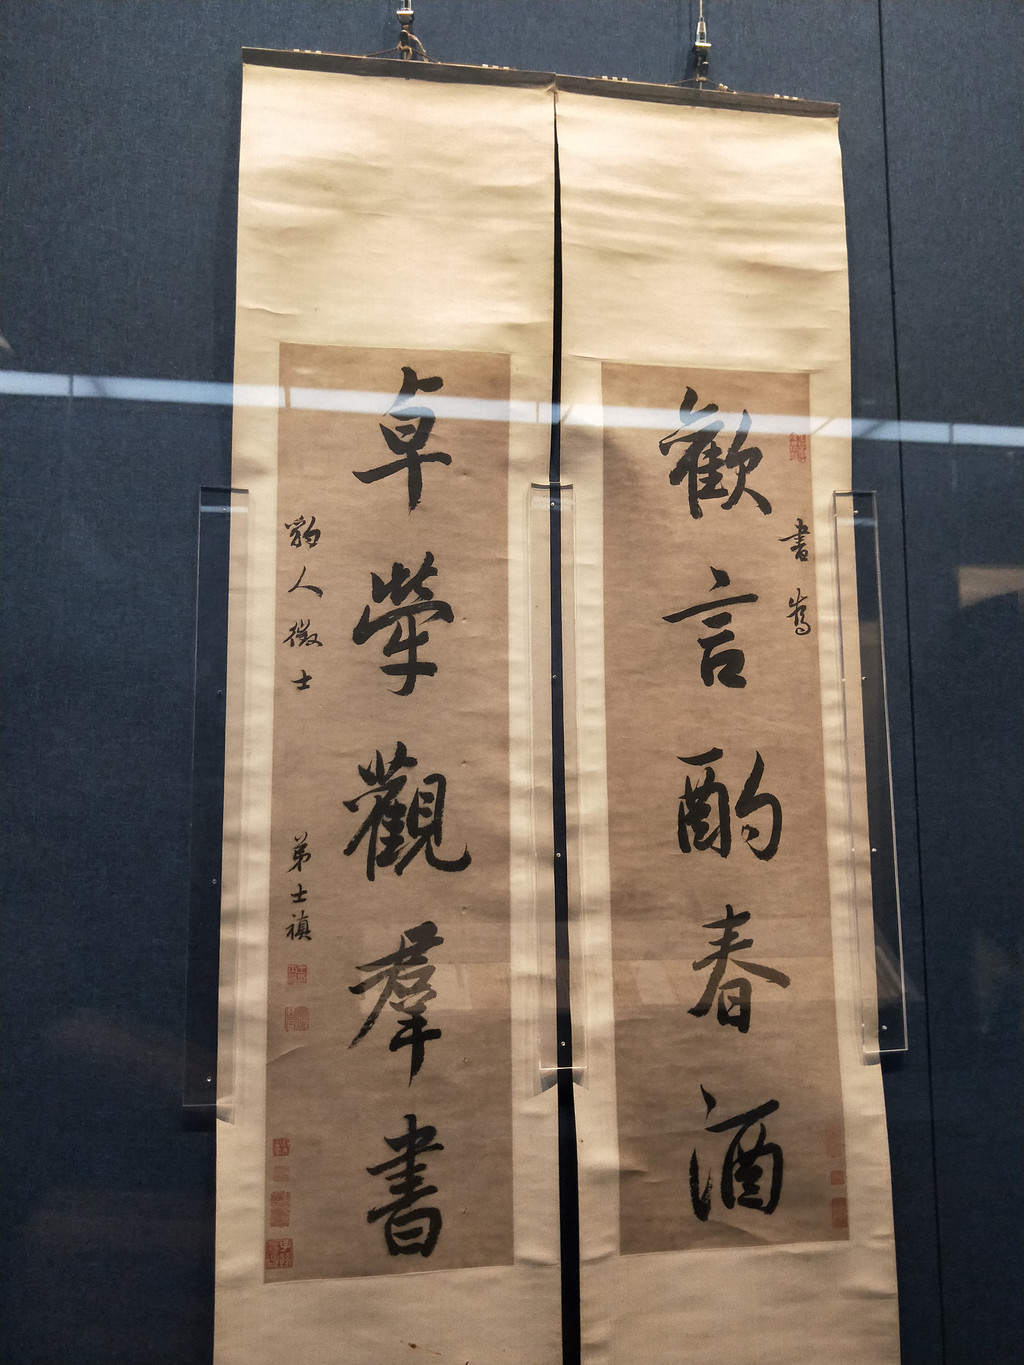 歡言酌春酒
書爲
卓犖觀羣書
豹人徵士
弟士禛